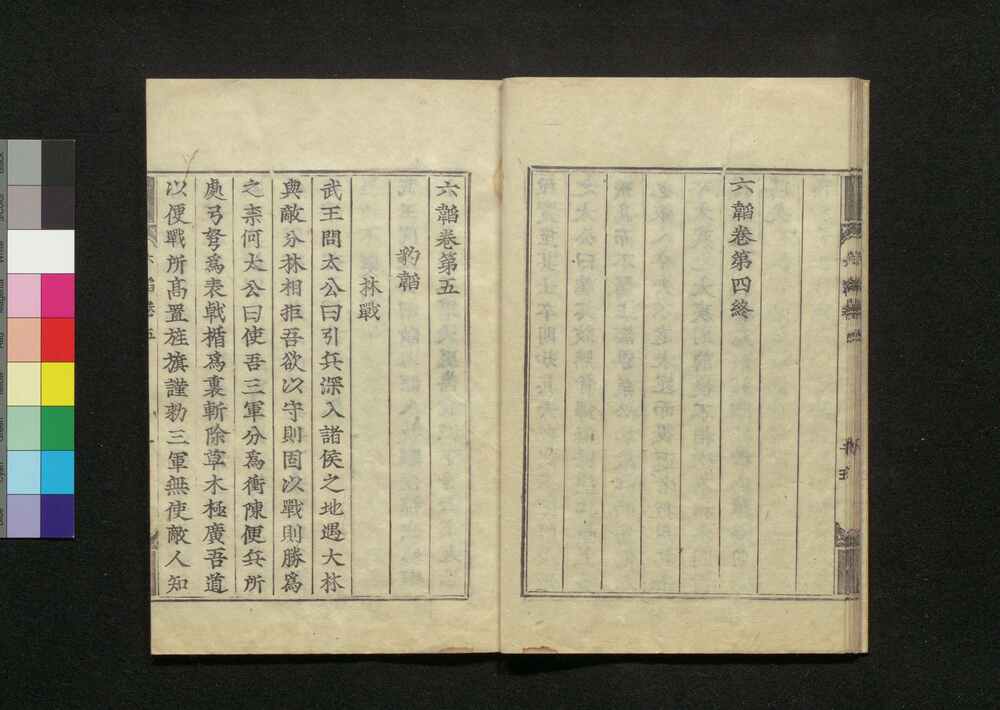 六韜卷第四終
六韜卷第五
豹韜
林戰
武王問太公曰引兵深入諸侯之地遇大林
與敵分林相拒吾欲以守則固以戰則勝爲
之柰何太公曰使吾三軍分爲衝陳便兵所
處弓弩爲表戟楯爲裏斬除草木極廣吾道
以便戰所高置旌旗謹勑三軍無使敵人知